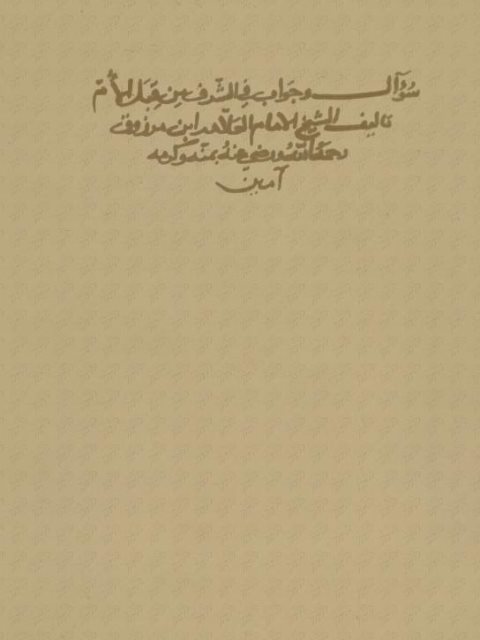 سُؤَال وجَوَاب في الشّرف مِن قِبَل الأُمّ
تاليف الشيخ الامام العلامه ابن مرزوق
رحمه الله ورضي عنهُ بمنّه وكرمه
آمين